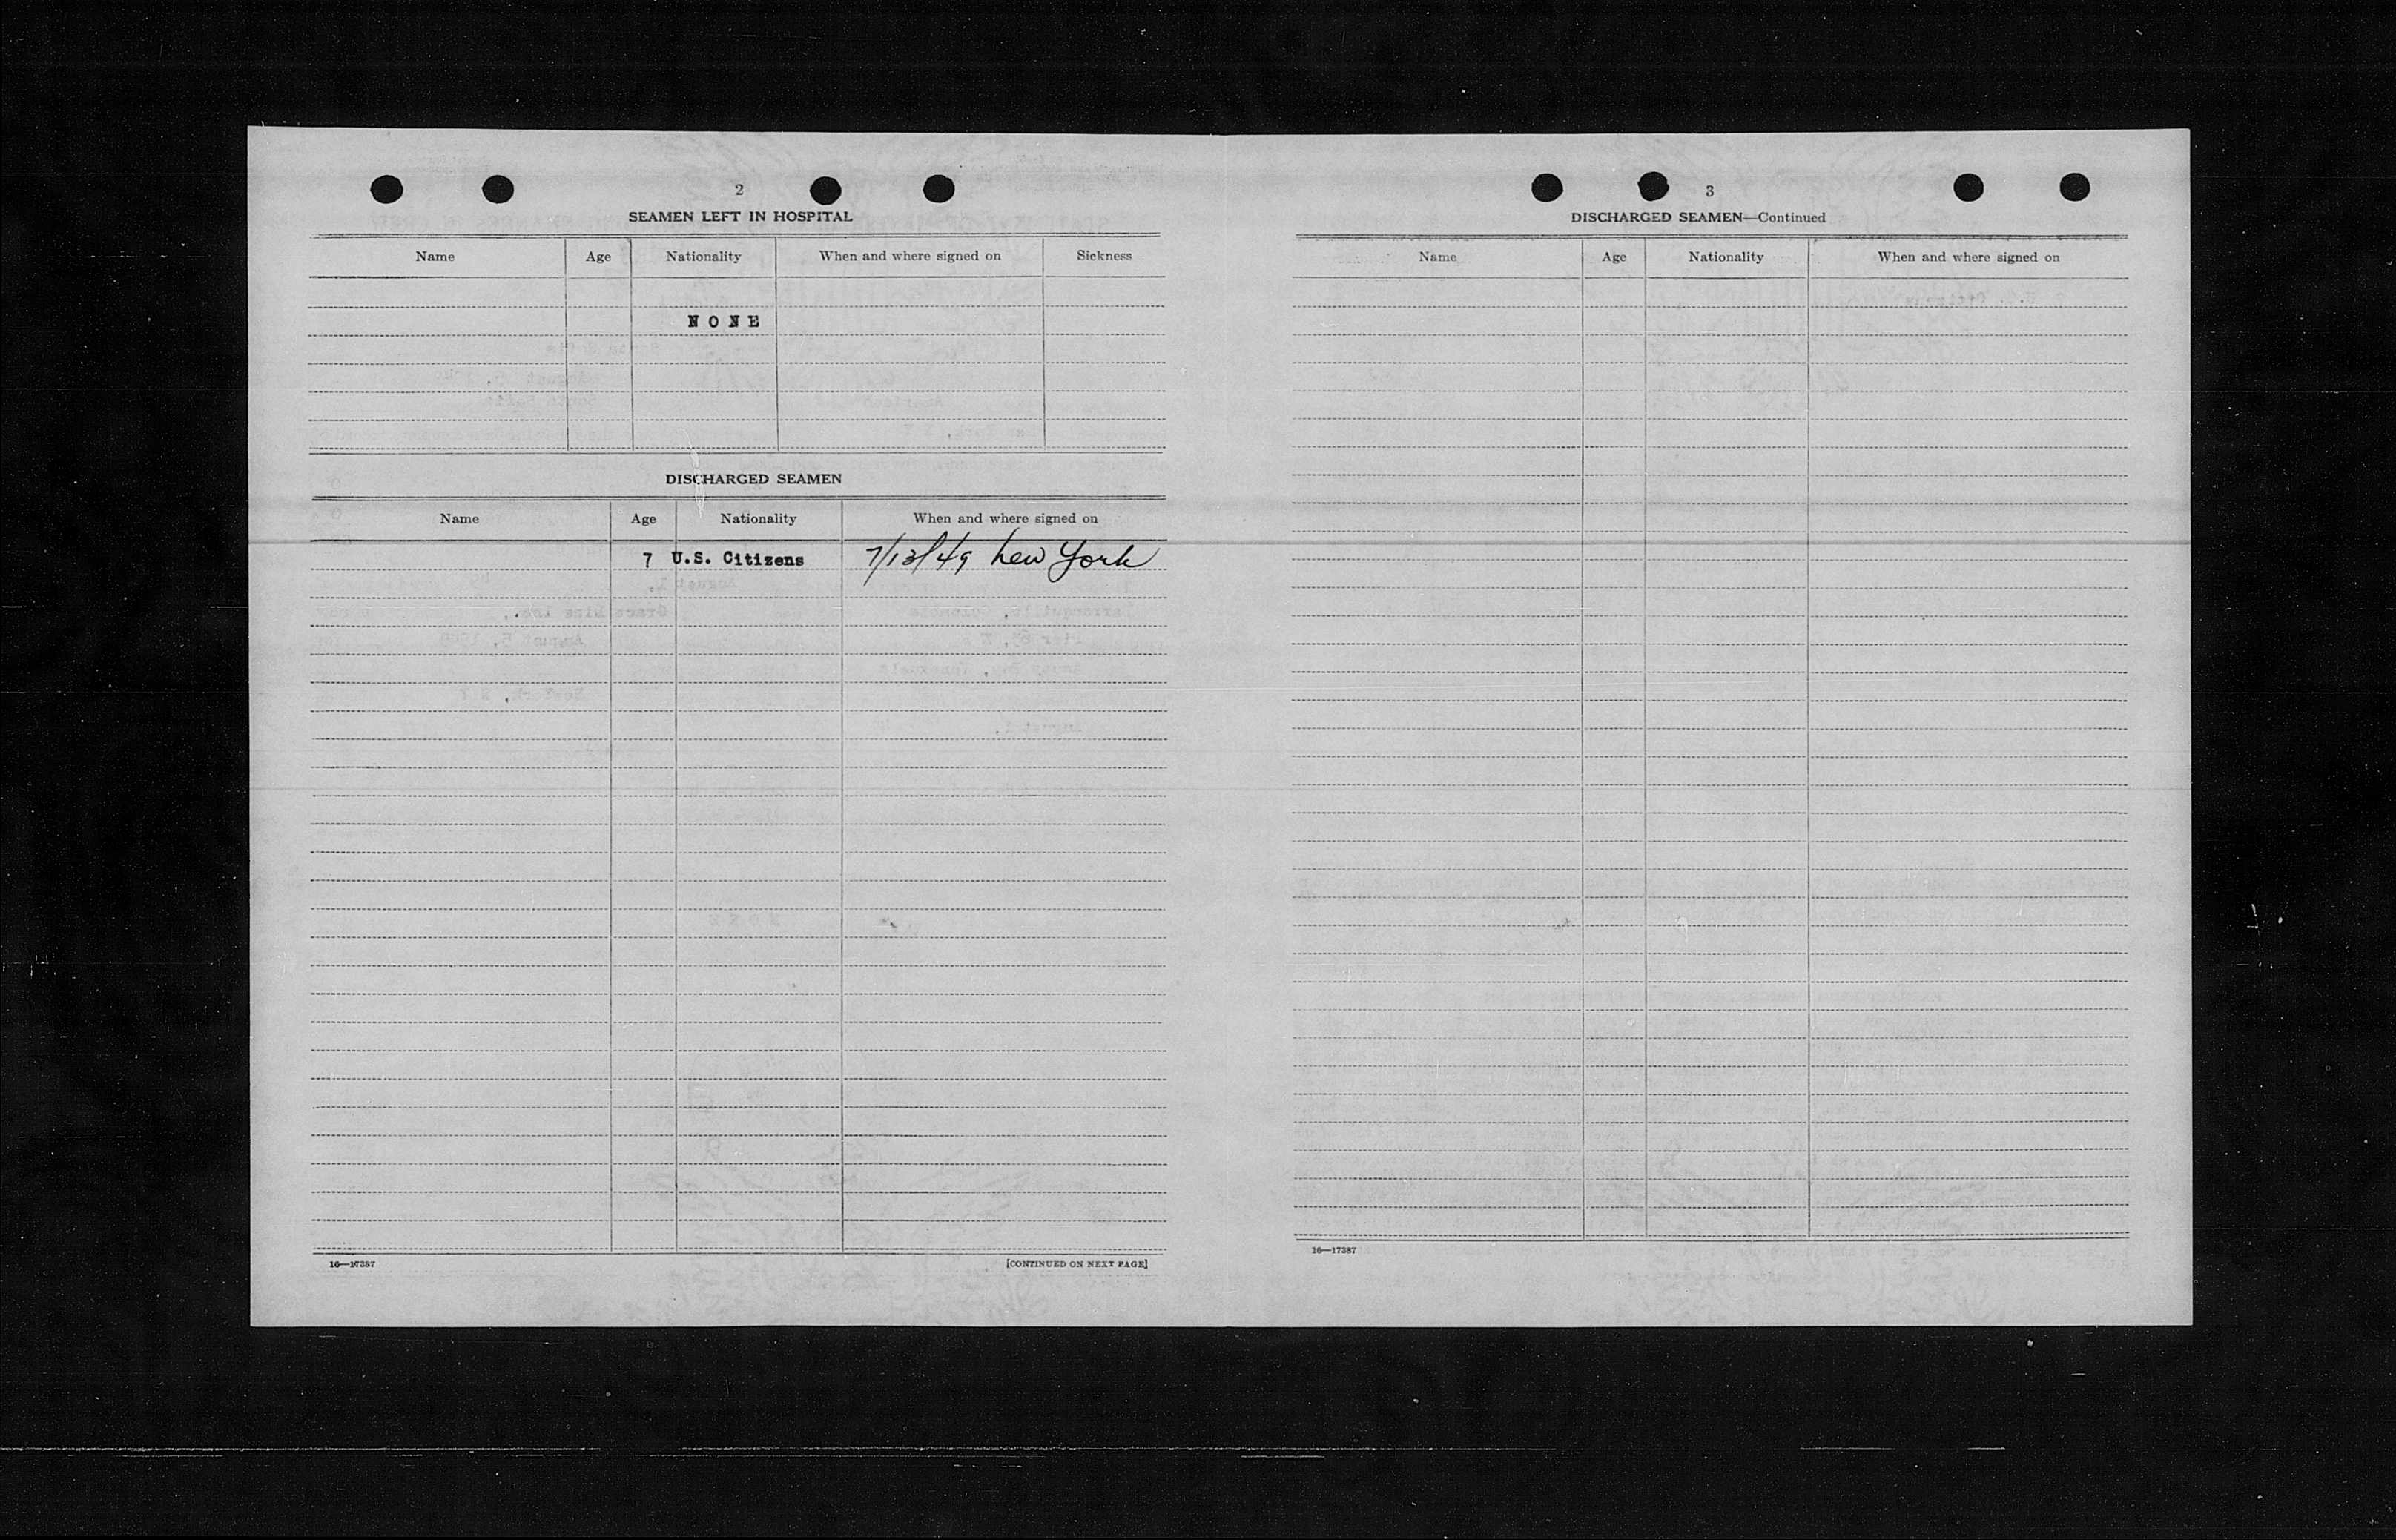 2
SEAMEN LEFT IN HOSPITAL
Name Age Nationality When and where signed on Sickness
NONE
DISCHARGED SEAMEN
Name Age Nationality When and where signed on
7 U.S. Citizens 7/13/49 New York
16—17387
[CONTINUED ON NEXT PAGE]
3
DISCHARGED SEAMEN—Continued
Name Age Nationality When and where signed on
16—17387